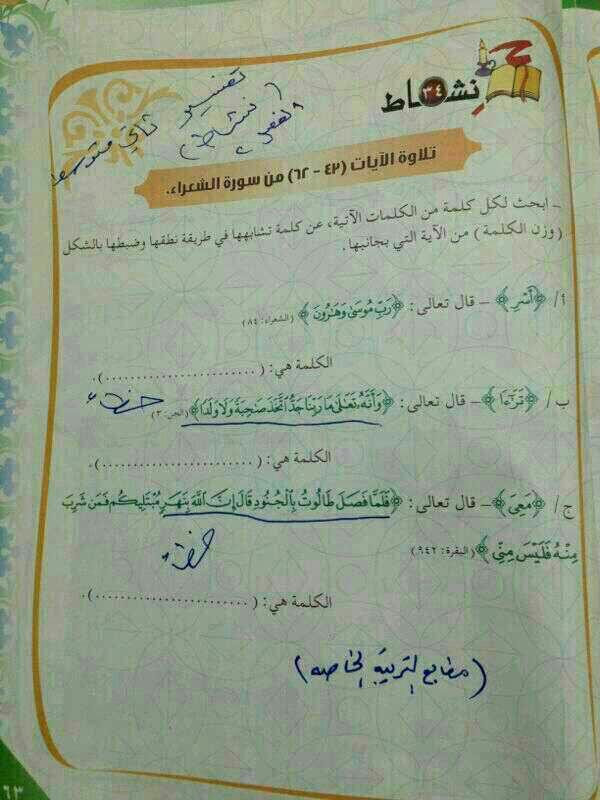 نشاط ٣٤
تفسير ثاني متوسط
( نشاط )
تلاوة الآيات (٤٢ - ٦٢) من سورة الشعراء.
- ابحث لكل كلمة من الكلمات الآتية، عن كلمة تشابهها في طريقة نطقها وضبطها بالشكل
( وزن الكلمة ) من الآية التي بجانبها.
أ/ ﴿أَسْرِ﴾ - قال تعالى: ﴿رَبِّ مُوسَىٰ وَهَٰرُونَ﴾ (الشعراء: ٨٤)
الكلمة هي: (........................).
ب/ ﴿تَرَٰٓءَا﴾ - قال تعالى: ﴿وَأَنَّهُۥ تَعَٰلَىٰ جَدُّ رَبِّنَا مَا ٱتَّخَذَ صَٰحِبَةً وَلَا وَلَدًا﴾ (الجن: ٣) خطأ
الكلمة هي: (........................).
ج/ ﴿مَعِىَ﴾ - قال تعالى: ﴿فَلَمَّا فَصَلَ طَالُوتُ بِٱلْجُنُودِ قَالَ إِنَّ ٱللَّهَ بِنَهَرٍ مُبْتَلِيكُم فَمَن شَرِبَ
مِنْهُ فَلَيْسَ مِنِّى﴾ (البقرة: ٩٤٢) خطأ
الكلمة هي: (........................).
(مطابع التربية الخاصه)
٦٣